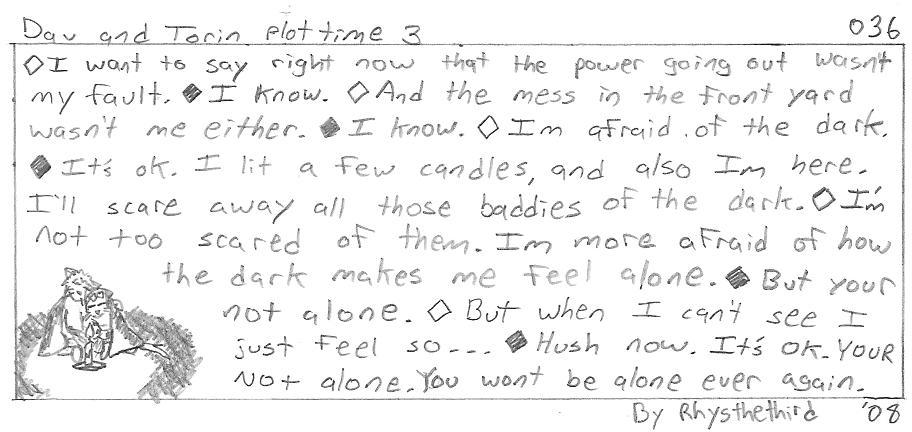 Dav and Torin plot time 3 036
◇I want to say right now that the power going out wasn't
my fault. ◆I know. ◇And the mess in the front yard
wasn't me either. ◆I know. ◇Im afraid of the dark.
◆It's ok. I lit a few candles, and also Im here.
I'll scare away all those baddies of the dark. ◇I'm
not too scared of them. Im more afraid of how
the dark makes me feel alone. ◆But your
not alone. ◇But when I can't see I
just feel so--- ◆Hush now. It's ok. YOUR
Not alone. You wont be alone ever again.
By Rhysthethird '08